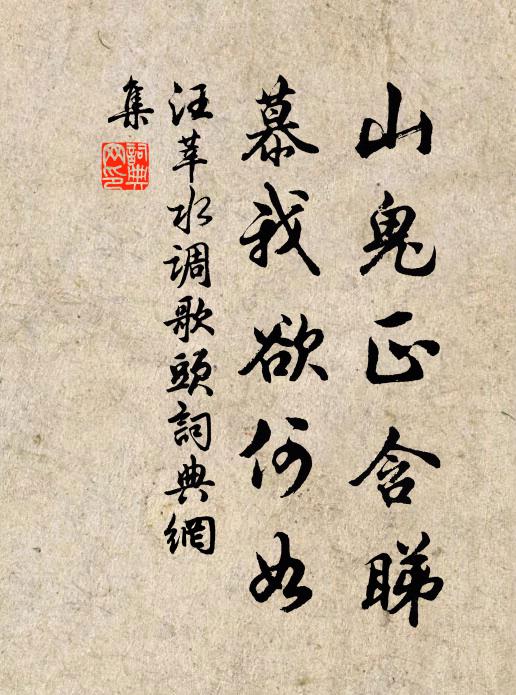 山鬼正含睇
慕我欲何如
汪莘水调歌頭詞典網
集
詞典網印